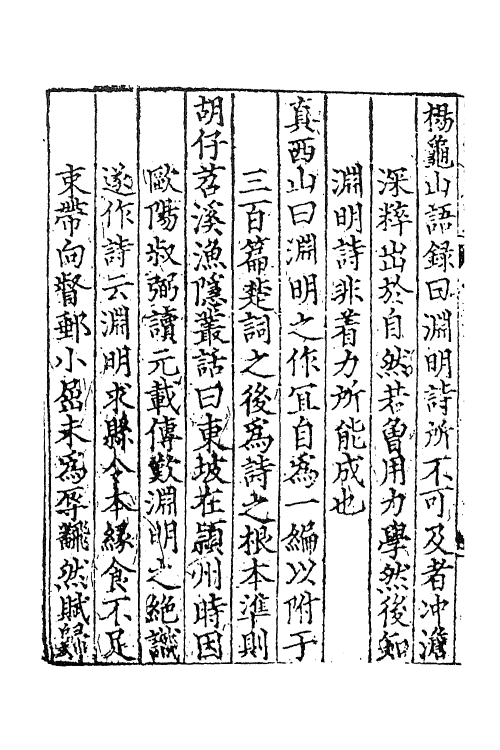 楊龜山語録曰淵明詩所不可及者冲澹
深粹出於自然若曽用力學然後知
淵明詩非着力所能成也
真西山曰淵明之作宜自為一編以附于
三百篇楚詞之後為詩之根本準則
胡仔苕溪漁隱叢話曰東坡在潁州時因
歐陽叔弼讀元載傳歎淵明之絶識
遂作詩云淵明求縣令本緣食不足
束帶向督郵小屈未為辱翻然賦歸